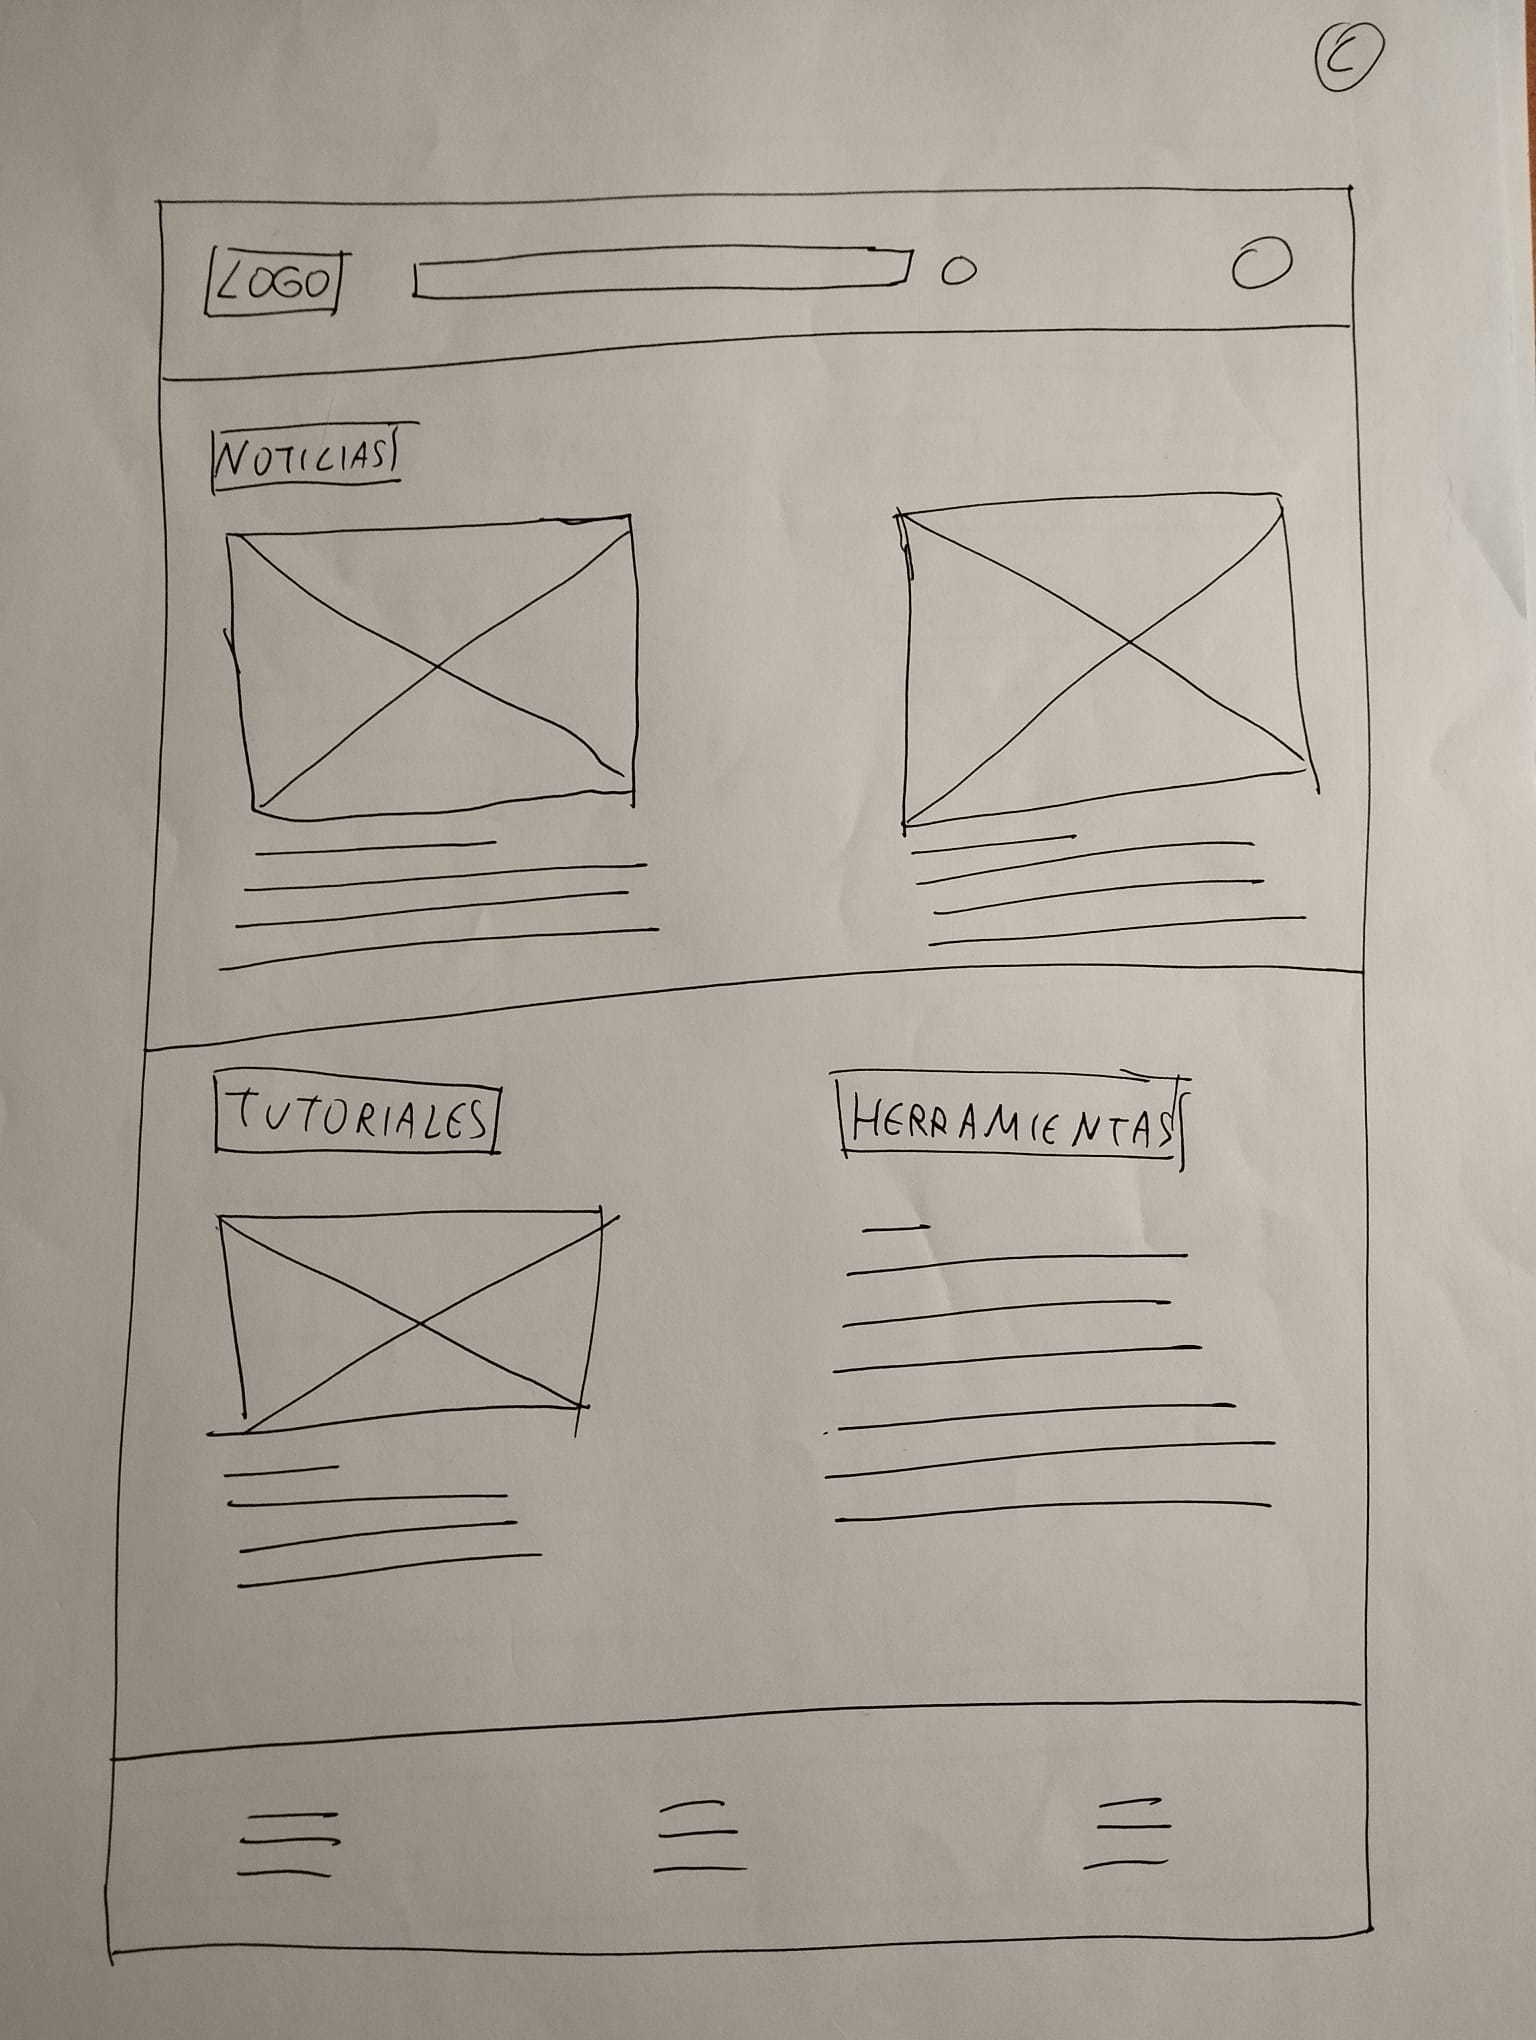 C
LOGO
NOTICIAS
TUTORIALES
HERRAMIENTAS